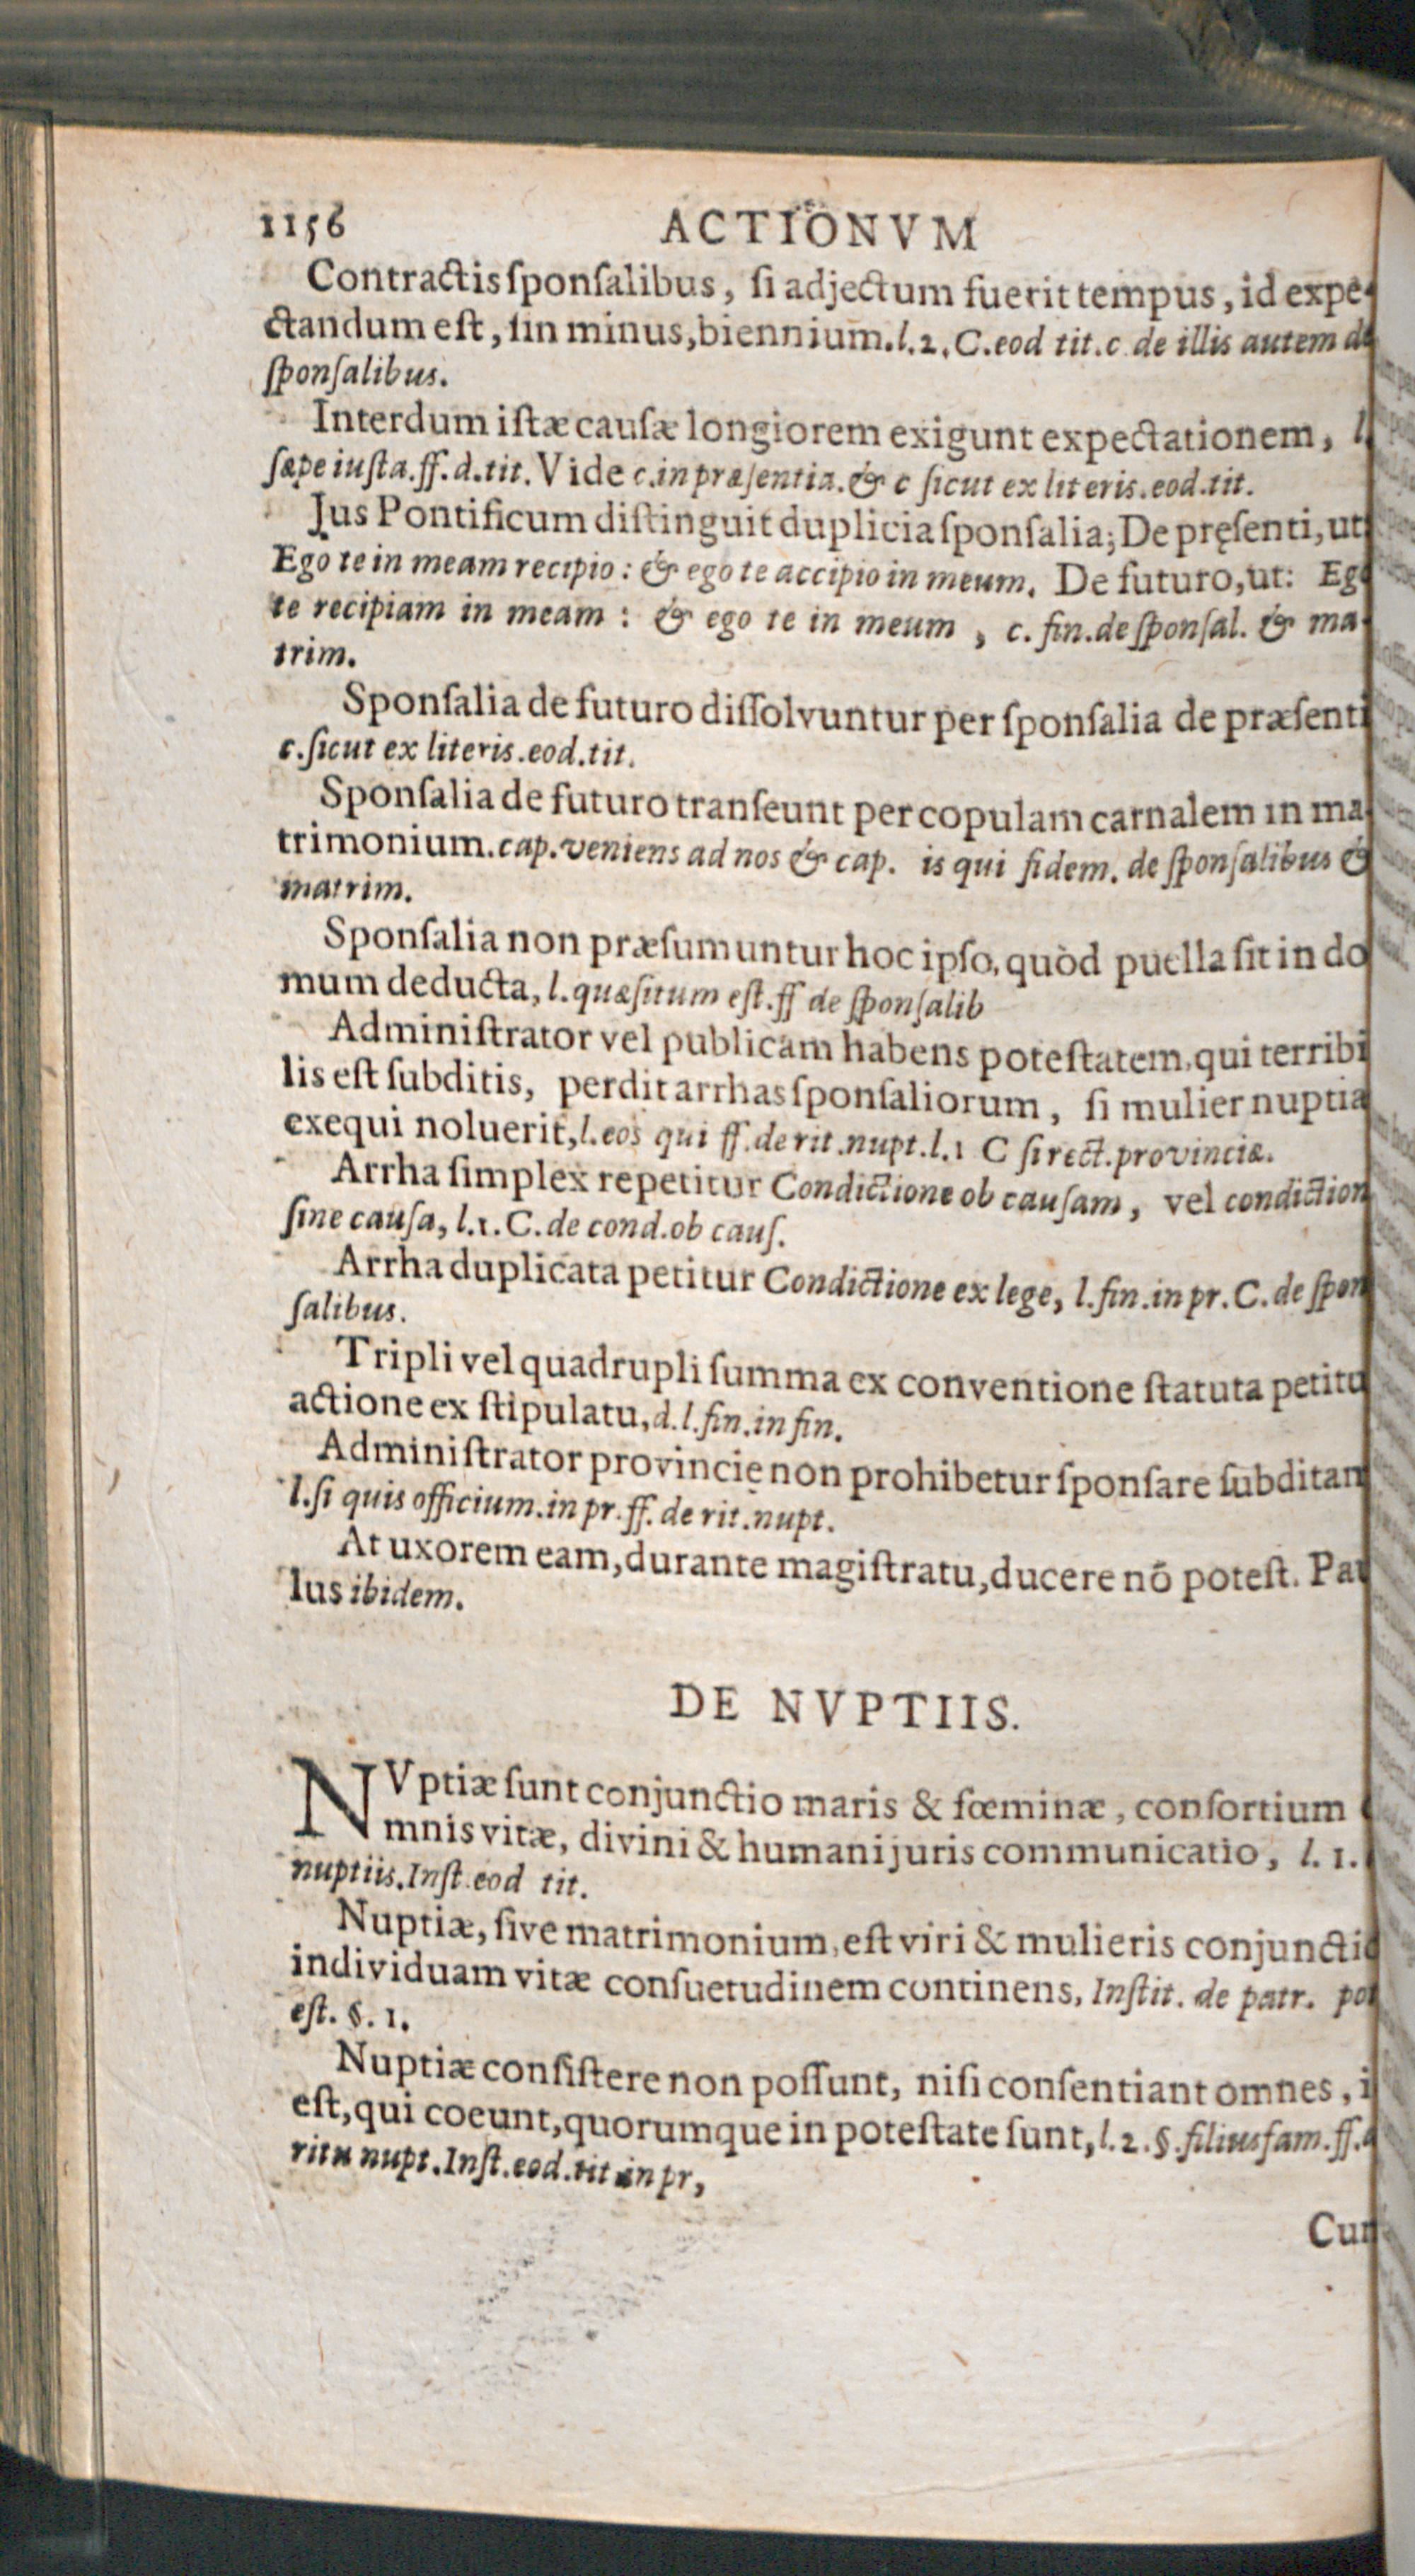 1156 ACTIONVM
Contractis ſponſalibus, ſi adjectum fuerit tempus, id expe-
ctandum eſt, ſin minus, biennium. l. 2. C. eod tit. c de illis autem de
ſponſalibus.
Interdum iſtæ cauſæ longiorem exigunt expectationem, l.
ſæpe iuſta. ff. d. tit. Vide c. in præſentia. & c ſicut ex literis. eod. tit.
Jus Pontificum diſtinguit duplicia ſponſalia; De pręſenti, ut
Ego te in meam recipio: & ego te accipio in meum. De futuro, ut: Ego
te recipiam in meam: & ego te in meum, c. fin. de ſponſal. & ma-
trim.
Sponſalia de futuro diſſolvuntur per ſponſalia de præſenti
c. ſicut ex literis. eod. tit.
Sponſalia de futuro tranſeunt per copulam carnalem in ma-
trimonium. cap. veniens ad nos & cap. is qui fidem. de ſponſalibus &
matrim.
Sponſalia non præſumuntur hoc ipſo, quòd puella ſit in do
mum deducta, l. quæſitum eſt. ff de ſponſalib
Adminiſtrator vel publicam habens poteſtatem, qui terribi
lis eſt ſubditis, perdit arrhas ſponſaliorum, ſi mulier nuptia
exequi noluerit, l. eos qui ff. de rit. nupt. l. 1 C ſi rect. provinciæ.
Arrha ſimplex repetitur Condictione ob cauſam, vel condiction
ſine cauſa, l. 1. C. de cond. ob cauſ.
Arrha duplicata petitur Condictione ex lege, l. fin. in pr. C. de ſpon
ſalibus.
Tripli vel quadrupli ſumma ex conventione ſtatuta petitu
actione ex ſtipulatu, d. l. fin. in fin.
Adminiſtrator provincię non prohibetur ſponſare ſubditam
l. ſi quis officium. in pr. ff. de rit. nupt.
At uxorem eam, durante magiſtratu, ducere nō poteſt. Pau
lus ibidem.
DE NVPTIIS.
NVptiæ ſunt conjunctio maris & fœminæ, conſortium
mnis vitæ, divini & humani juris communicatio, l. 1.
nuptiis. Inſt. eod tit.
Nuptiæ, ſive matrimonium, eſt viri & mulieris conjunctio
individuam vitæ conſuetudinem continens, Inſtit. de patr. pot
eſt. §. 1.
Nuptiæ conſiſtere non poſſunt, niſi conſentiant omnes, i
eſt, qui coeunt, quorumque in poteſtate ſunt, l. 2. §. filiusfam. ff.
ritu nupt. Inſt. eod. tit in pr,
Cum